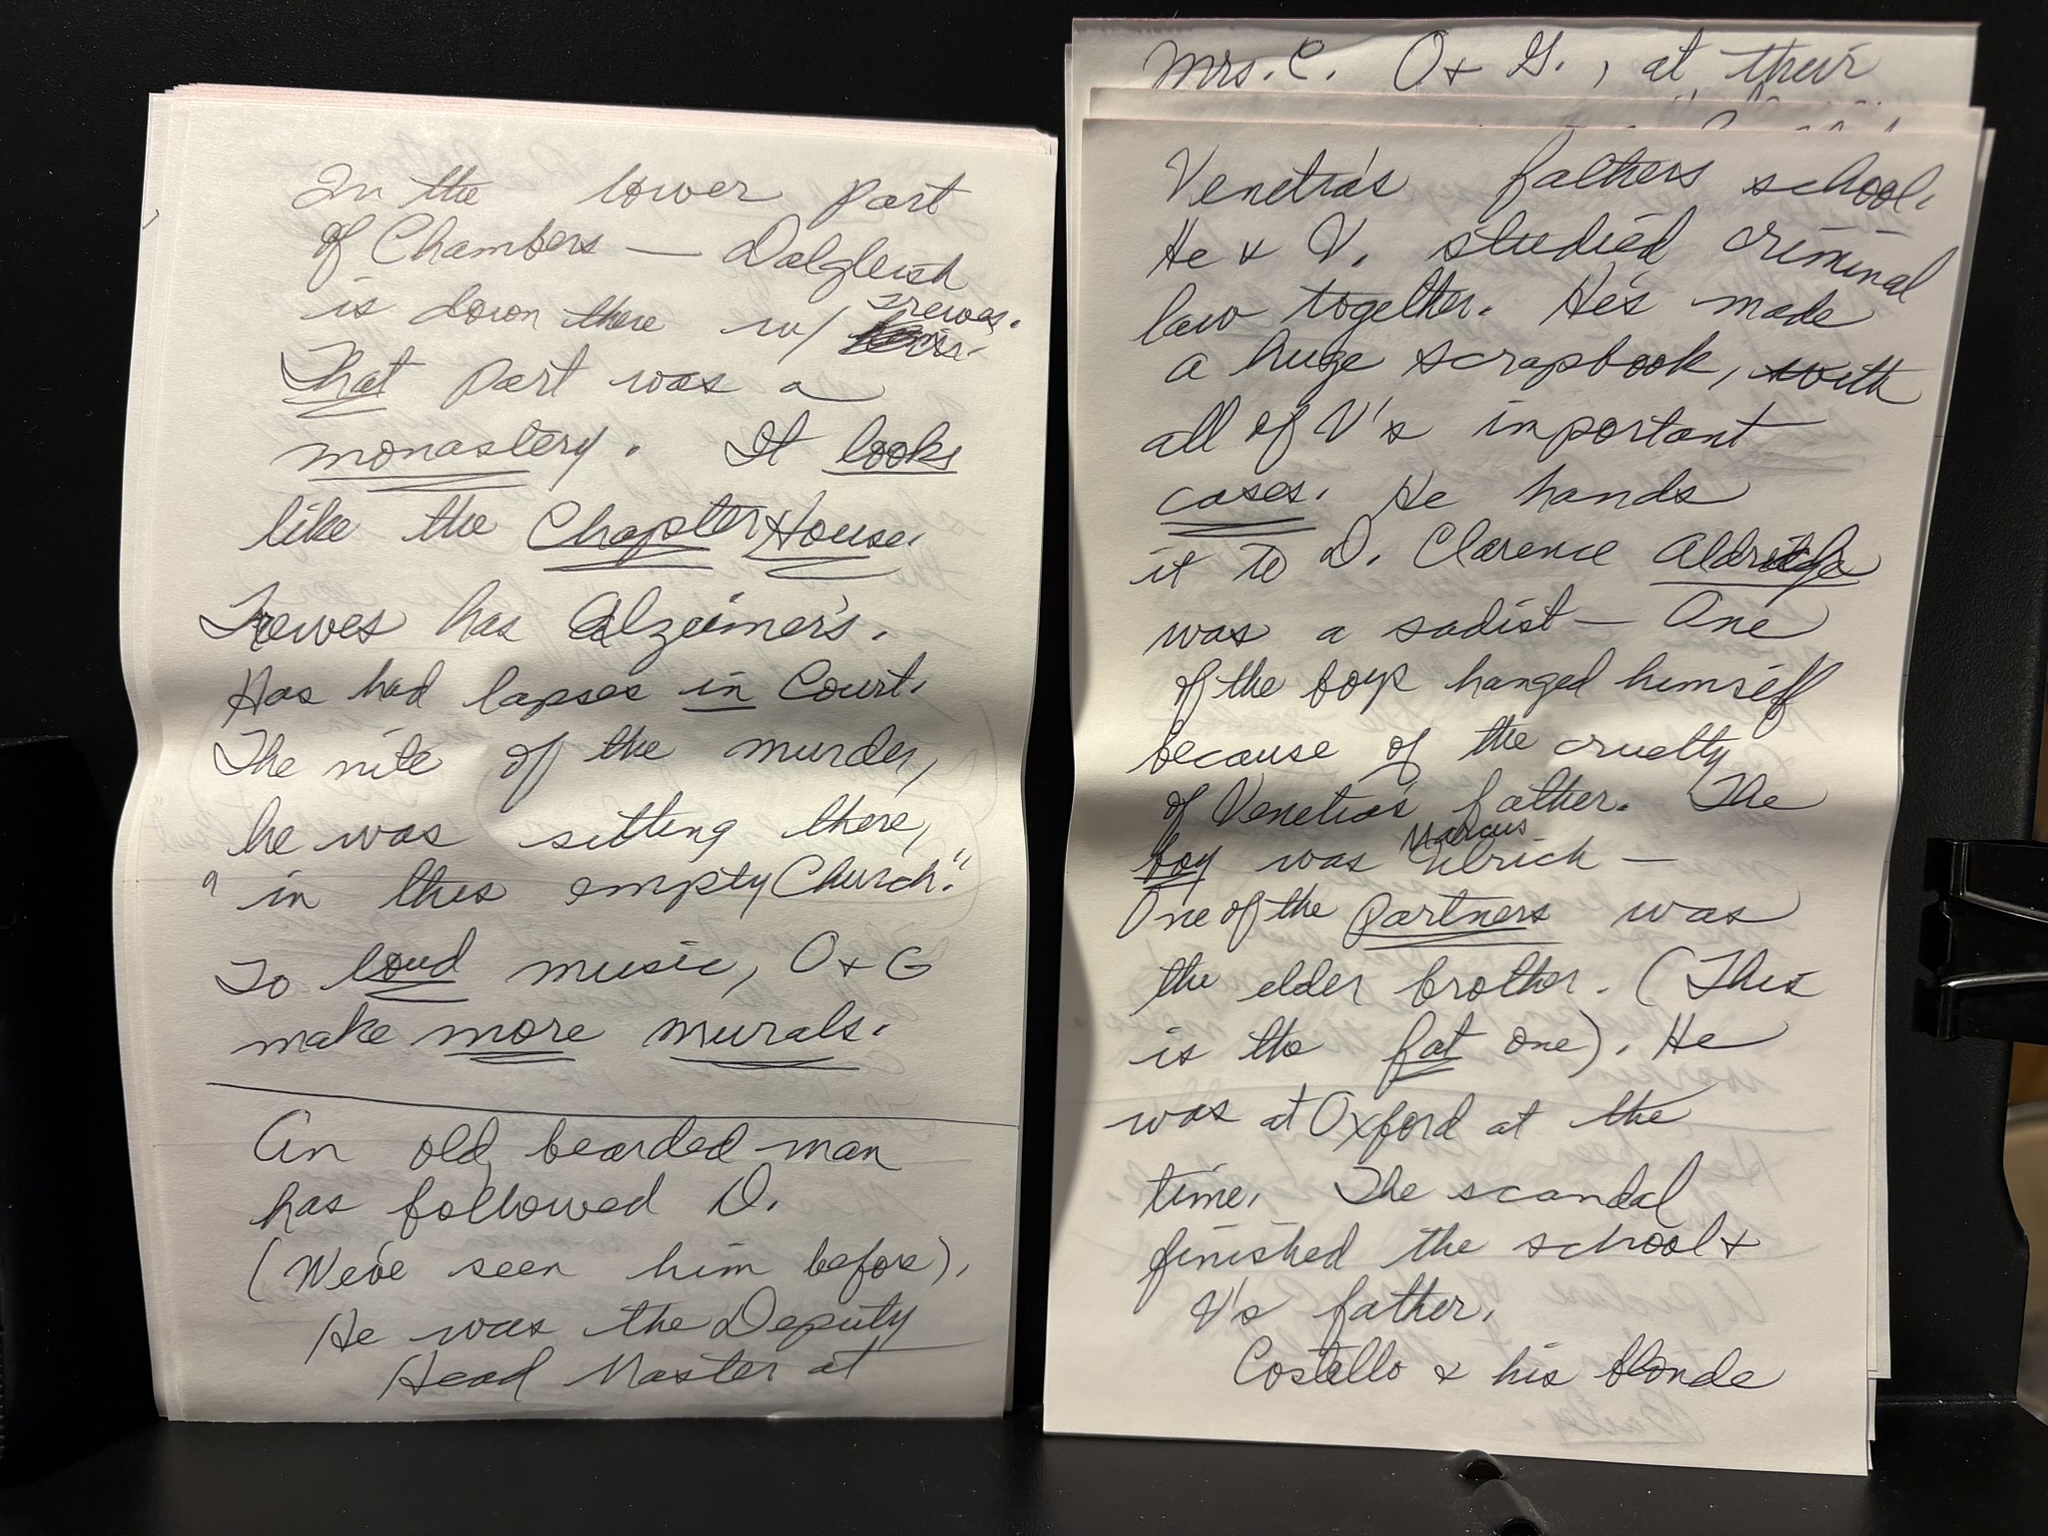 In the lower part
of Chambers — Dalgleish
is down there w/ Trewes.
That part was a
monastery. It looks
like the Chapter House.
Trewes has Alzeimer's.
Has had lapses in Court.
The nite of the murder,
he was sitting there,
"in this empty Church."
To loud music, O + G
make more murals.
An old, bearded man
has followed D.
(We've seen him before).
He was the Deputy
Head Master at
Mrs. C. O + G., at their
Venetia's fathers school.
He + V. studied criminal
law together. He's made
a huge scrapbook, with
all of V's important
cases. He hands
it to D. Clarence Aldridge
was a sadist — One
of the boys hanged himself
because of the cruelty
of Venetia's father. The
boy was Marcus Ulrich —
One of the Partners was
the elder brother. (This
is the fat one). He
was at Oxford at the
time. The scandal
finished the school +
V's father.
Costello + his blonde